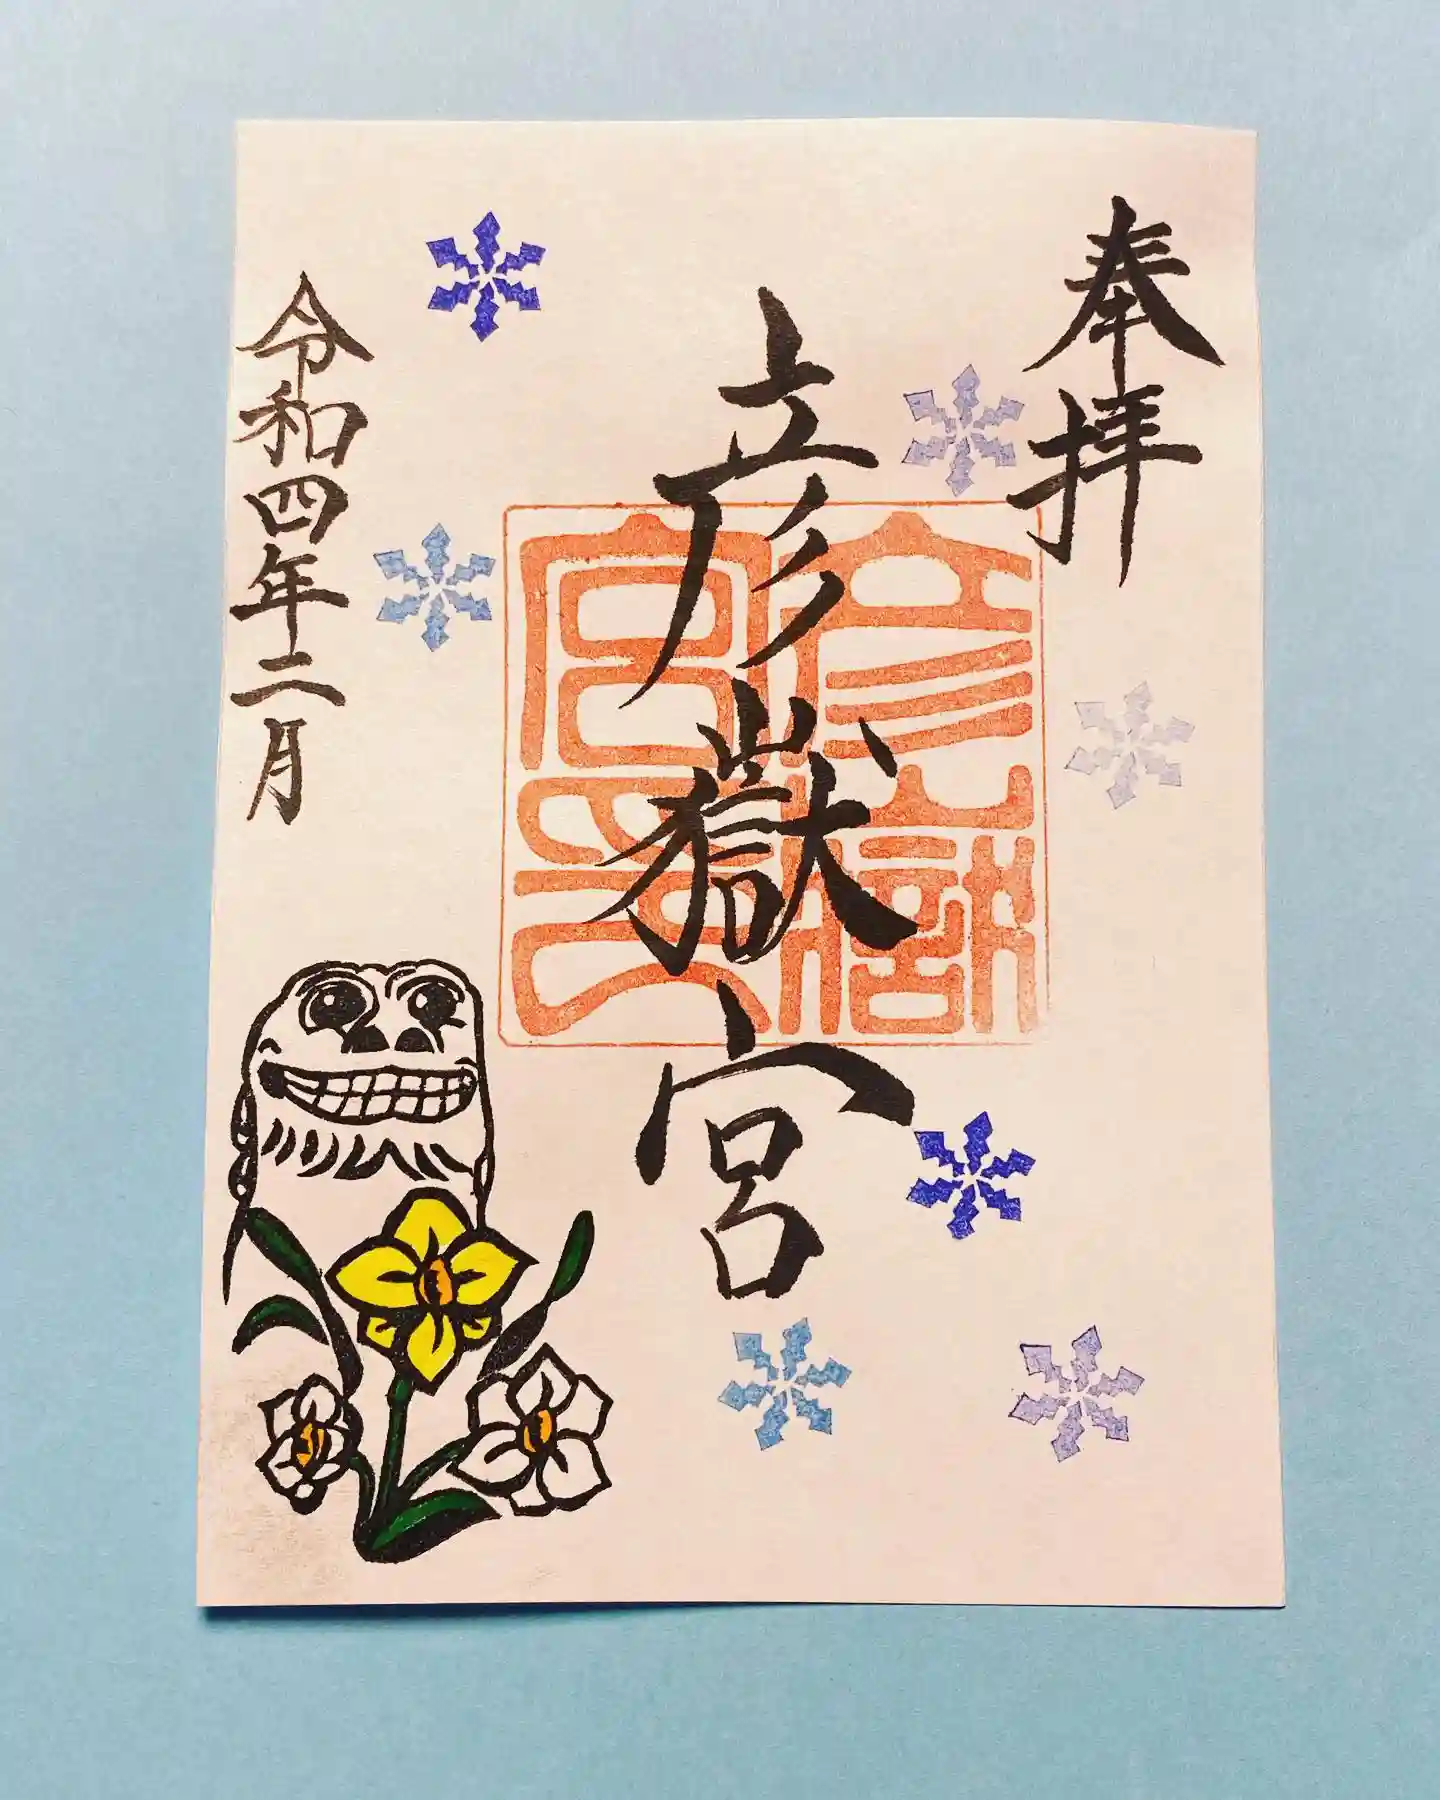 奉拝
彦嶽宮
彦嶽宮印
令和四年二月